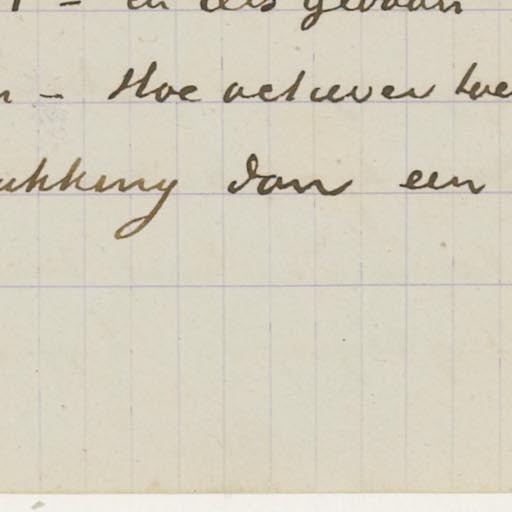 – en iets gedaan
n – Hoe actiever hoe
ukking dan een